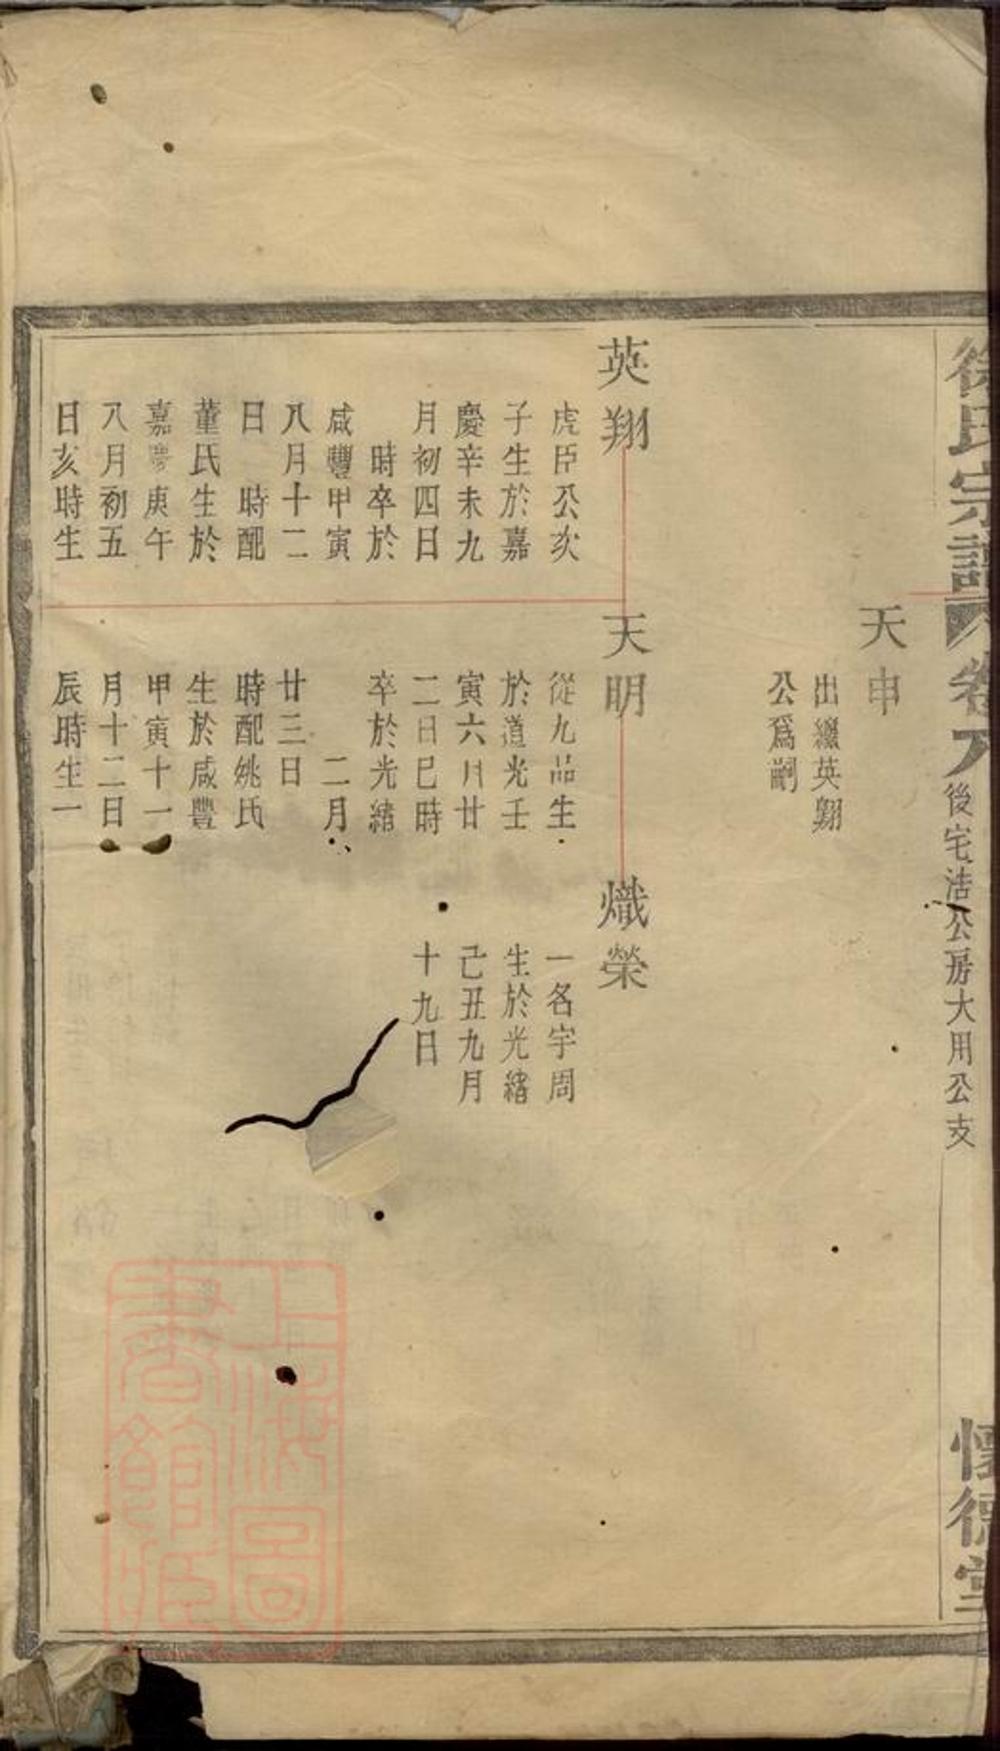 徐氏宗譜
卷八
後宅浩公房大用公支
懷德堂
天申
出繼英翱
公爲嗣
英翔
虎臣公次
子生於嘉
慶辛未九
月初四日
時卒於
咸豐甲寅
八月十二
日 時配
董氏生於
嘉慶庚午
八月初五
日亥時生
天明
從九品生
於道光壬
寅六月廿
二日巳時
卒於光緒
二月
廿三日
時配姚氏
生於咸豐
甲寅十一
月十二日
辰時生一
熾榮
一名宇周
生於光緒
己丑九月
十九日
上海圖書館藏